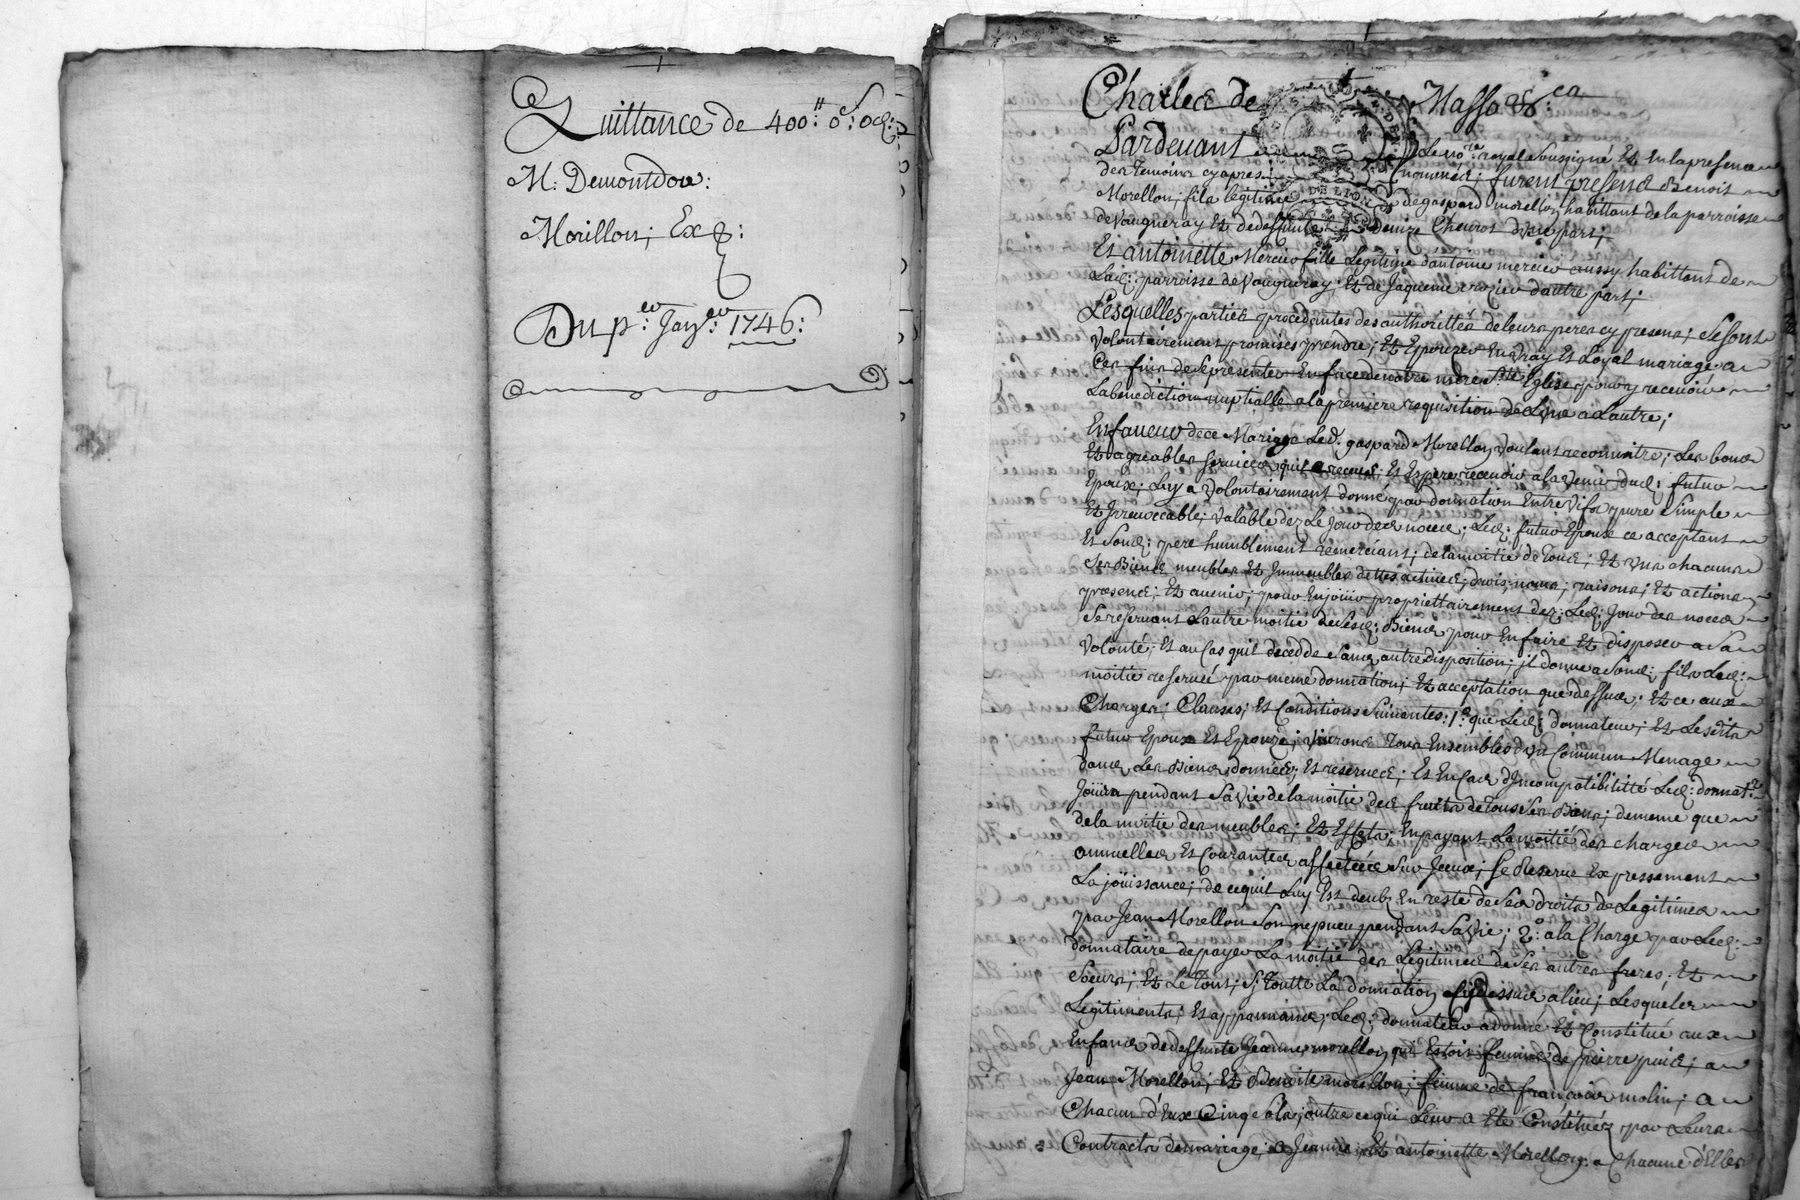 Quittance de 400ᵗᵗ: 0ˢ: 0d:
M: Demontdor:
Morillon; Exp:
Du p.er Janv.er 1746:
Charles de Masso &.ca
Pardevant Le no.re royal soussigné Et En la presence
des Temoins cy apres nommes; furent presens Benoist
Morellon; fils legitime de gaspard morellon habittant de la parroisse
de Vaugneray Et de deffunte d'une part;
Et antoinette Mercier fille Legitime d'antoine mercier aussy habittans de
Lad: parroisse de Vaugneray; Et de Jaqueme d'autre part;
Lesquelles parties procedantes des authorittés de leurs peres cy presens; se sont
Volontairement promises prendre; Et Epouzer En vray Et Loyal mariage a
Ces fins de se presenter En face de notre mere S.te Eglise pour y recevoir
La benediction nuptialle a la premiere requisition de L'une a L'autre;
En faveur de ce Mariage Led. gaspard Morellon Voulant reconnitre; Les bons
Et agreables services quil a receus; Et Espere recevoir a la Venir dud: futur
Epoux; Luy a Volontairement donné par donnation Entre Vifs pure simple
Et Irrevoccable; Valable dez Le Jour des noces; Led: futur Epoux ce acceptant
Et Sond: pere humblement remerciant; de la moitié de Tous; Et uns chacuns
Ses Biens meubles Et Immeubles dettes actives; droits; noms; raisons; Et actions
presens; Et avenir; pour En jöüir proprietairement dez; Led: Jour des noces
Se reservant Lautre moitie de Sesd: Biens pour En faire Et disposer a Sa
Volonté; Et au Cas quil decedde Sans autre disposition; il donne a Sond: fils Lad:
moitié reservée par meme donnation; Et acceptation que dessus; Et ce aux
Charges; Clauses; Et Conditions Suivantes: 1.° que Led: donnateur; Et Lesdits
futur Epoux Et Epouze; vivront Tous Ensembles d'un Commun Menage
dans Les Biens donnés; Et reservés; Et En Cas d'Incompatibilitté Led: donnat.r
Jöüira pendant Sa Vie de la moitié des fruits de Tous Ses Biens; de meme que
de la moitié des meubles; Et Effets; En payant La moitié des charges
annuelles Et Courantes affectées Sur Iceux; Se Reserve Expressement
La jöüissance; de ce quil Luy Est deub; En reste de Ses droits de Legitimes
par Jean Morellon Son nepveu pendant Sa Vie; 2.° a la Charge par Led:
donnataire de payer La moitié des Legitimes de Ses autres freres; Et
Soeurs; Et Le Tout; Si Toutte La donnation Cy dessus a lieu; Lesquéles
Legitiments; Et appannants; Led: donnateur a donné Et Constitué aux
Enfans de deffunte Jeanne morellon qui Estoit femme de pierre; a
Jean Morellon; Et Benoite morellon; femme de françois molin; a
Chacun d'Eux Cinq Sols; outre ce qui Leur a Eté Constitués par Leurs
Contracts de mariage; a Jeanne; Et antoinette Morellon a Chacune d'Elles